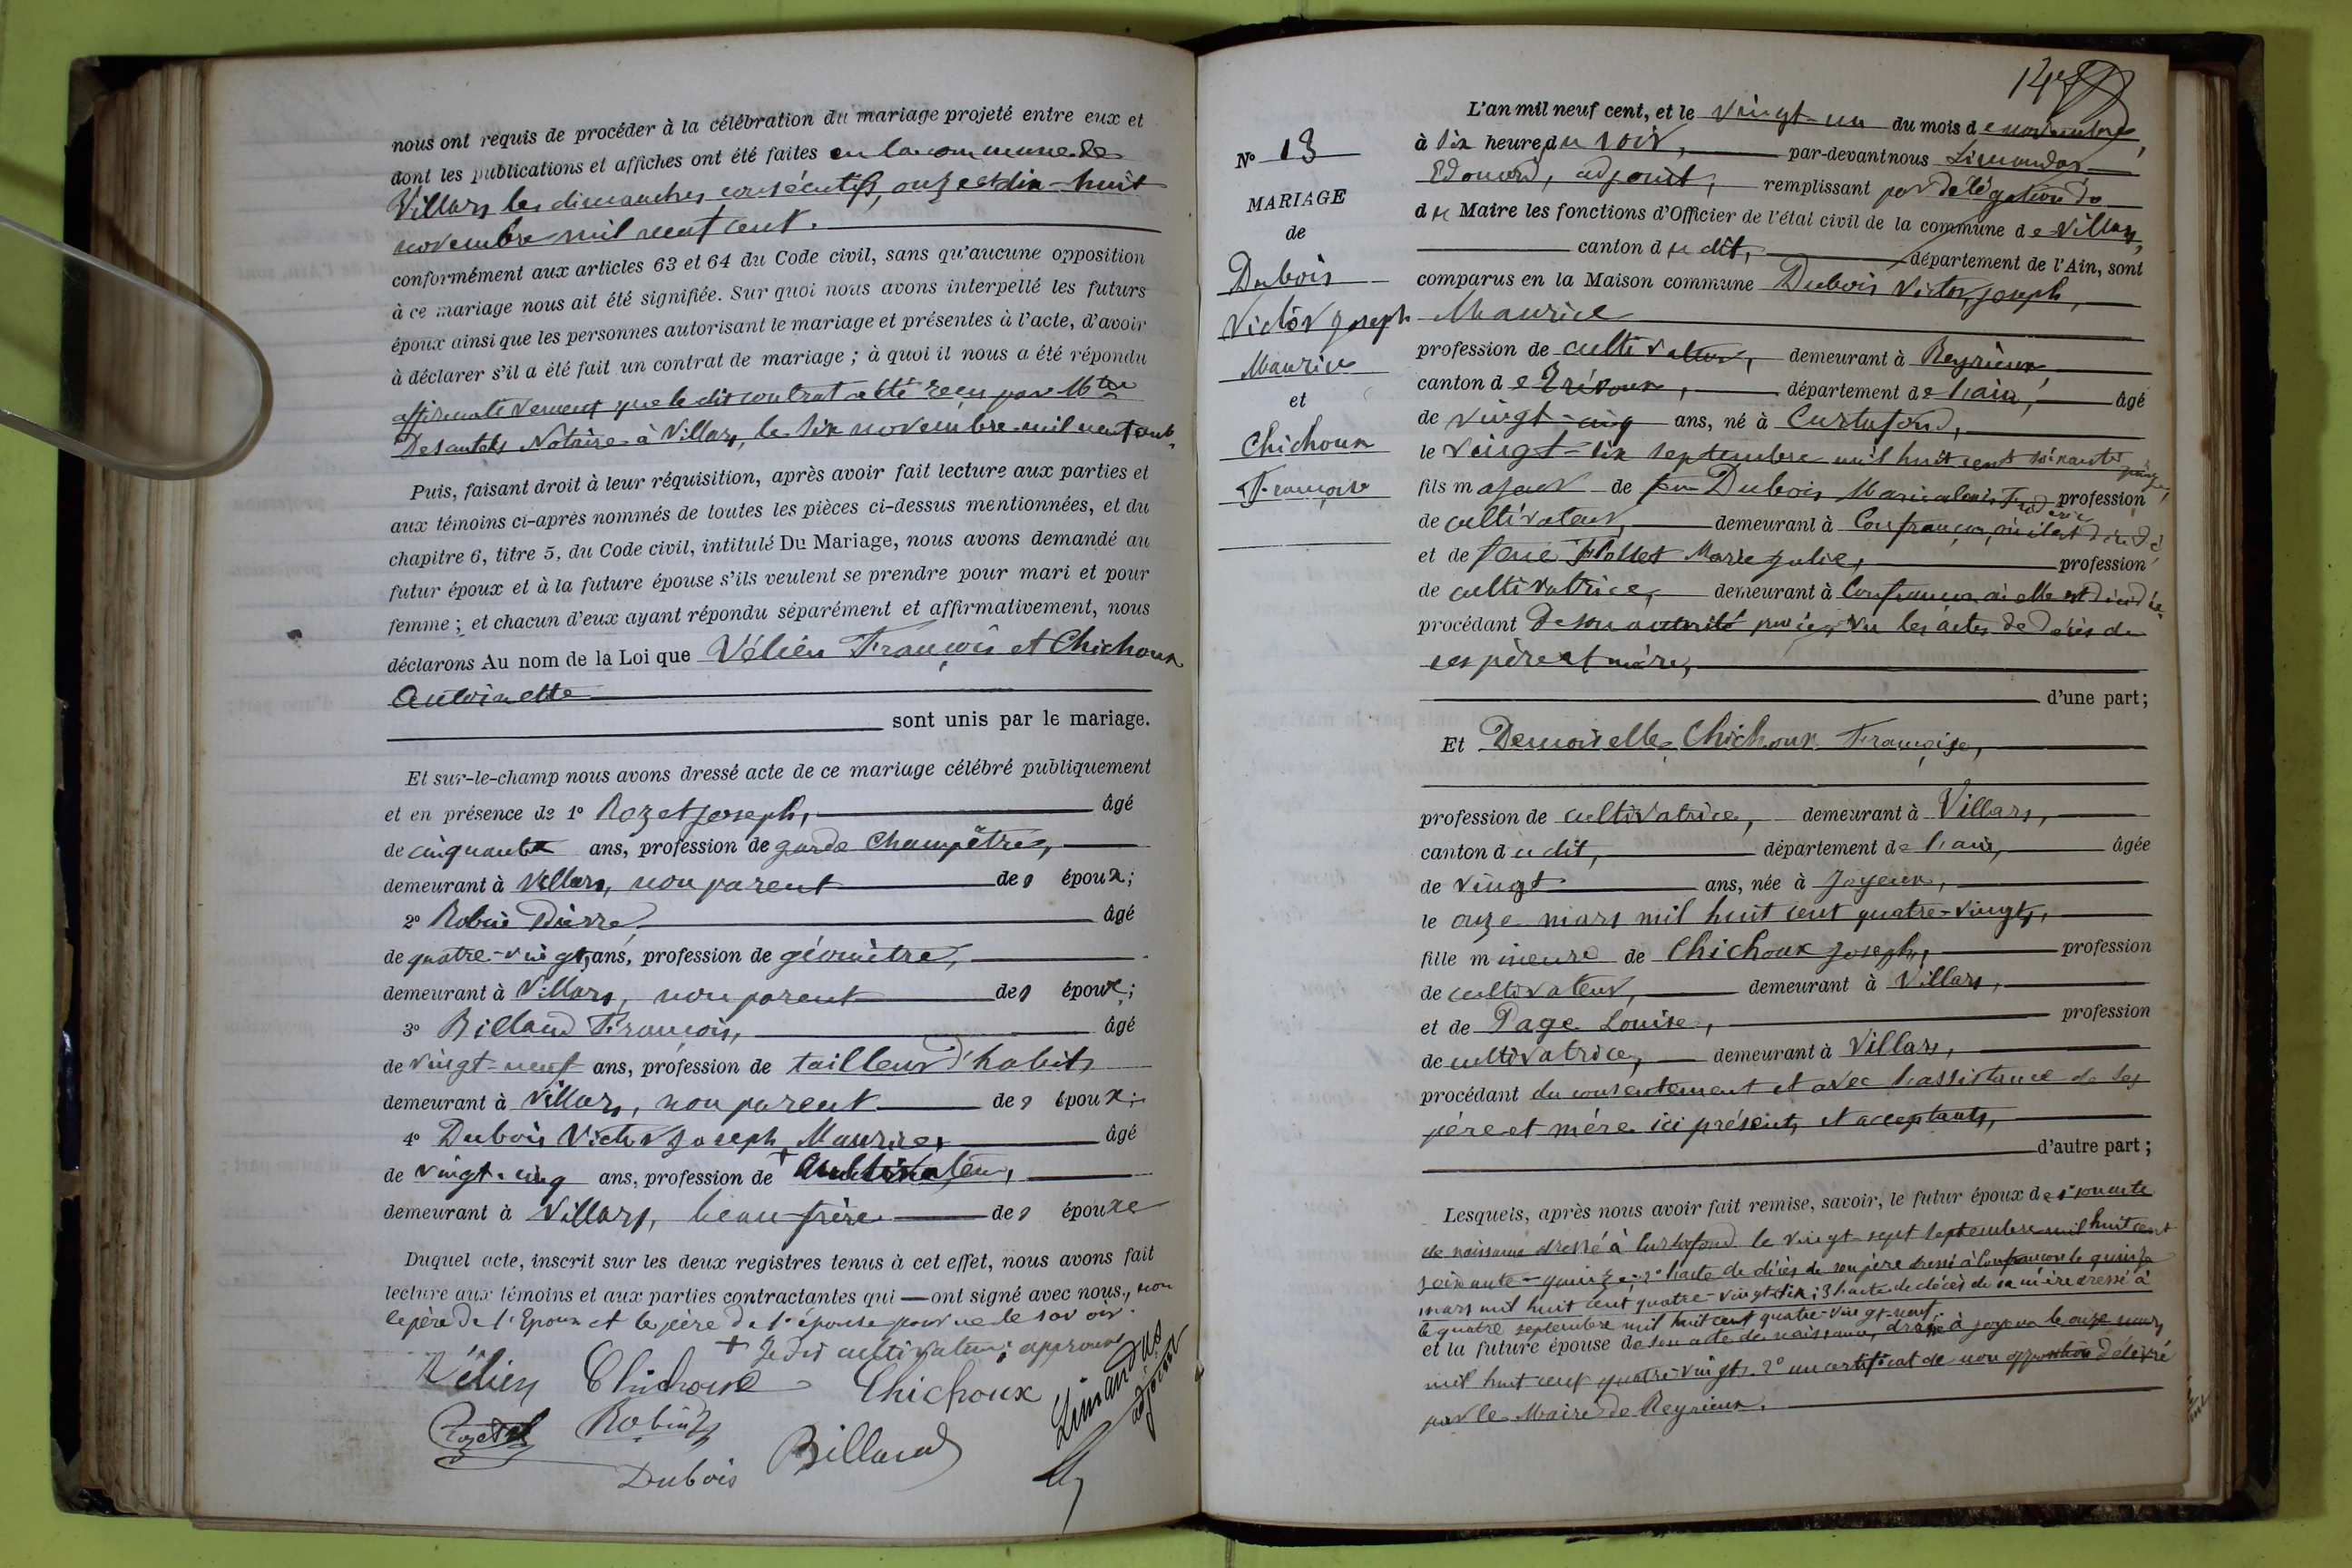 nous ont requis de procéder à la célébration du mariage projeté entre eux et
dont les publications et affiches ont été faites en la commune de
Villars les dimanches consécutifs, onze et dix-huit
novembre mil neuf cent.
conformément aux articles 63 et 64 du Code civil, sans qu'aucune opposition
à ce mariage nous ait été signifiée. Sur quoi nous avons interpellé les futurs
époux ainsi que les personnes autorisant le mariage et présentes à l'acte, d'avoir
à déclarer s'il a été fait un contrat de mariage ; à quoi il nous a été répondu
affirmativement que le dit contrat a été reçu par Mtre
Desautels Notaire à Villars, le six novembre mil neuf cent.
Puis, faisant droit à leur réquisition, après avoir fait lecture aux parties et
aux témoins ci-après nommés de toutes les pièces ci-dessus mentionnées, et du
chapitre 6, titre 5, du Code civil, intitulé Du Mariage, nous avons demandé au
futur époux et à la future épouse s'ils veulent se prendre pour mari et pour
femme ; et chacun d'eux ayant répondu séparément et affirmativement, nous
déclarons Au nom de la Loi que Vélien François et Chichoux
Antoinette
sont unis par le mariage.
Et sur-le-champ nous avons dressé acte de ce mariage célébré publiquement
et en présence de 1° Rozet Joseph, âgé
de cinquante ans, profession de garde champêtre,
demeurant à Villars, non parent des époux;
2° Robin Pierre, âgé
de quatre-vingts ans, profession de géomètre,
demeurant à Villars, non parent des époux;
3° Billand François, âgé
de vingt-neuf ans, profession de tailleur d'habits
demeurant à Villars, non parent des époux;
4° Dubois Victor Joseph Maurice, âgé
de vingt-cinq ans, profession de + cultivateur,
demeurant à Villars, beau-frère des époux
Duquel acte, inscrit sur les deux registres tenus à cet effet, nous avons fait
lecture aux témoins et aux parties contractantes qui ont signé avec nous, non
le père de l'Epoux et le père de l'épouse pour ne le savoir.
+ Je dis cultivateur approuvé
Vélien Chichoux Chichoux
Rozet Robin
Dubois Billand
Limandas adjoint
14
N° 13
MARIAGE
de
Dubois
Victor Joseph
Maurice
et
Chichoux
Françoise
L'an mil neuf cent, et le vingt-un du mois de novembre,
à six heures du soir, par-devant nous Limandas
Edouard, adjoint, remplissant par délégation de
du Maire les fonctions d'Officier de l'état civil de la commune de Villars,
canton du dit, département de l'Ain, sont
comparus en la Maison commune Dubois Victor, Joseph,
Maurice
profession de cultivateur, demeurant à Reyrieux,
canton de Trévoux, département de l'ain, âgé
de vingt-cinq ans, né à Curtafond,
le vingt-six septembre mil huit cent soixante quinze,
fils majeur de feu Dubois Marie Louis Frédéric profession
de cultivateur, demeurant à Confrançon, où il est décédé
et de feue Flollet Marie Julie, profession
de cultivatrice, demeurant à Confrançon où elle est décédée
procédant de son autorité privée, vu les actes de décès de
ses père et mère,
d'une part;
Et Demoiselle, Chichoux Françoise,
profession de cultivatrice, demeurant à Villars,
canton du dit, département de l'ain, âgée
de vingt ans, née à Joyeux,
le onze mars mil huit cent quatre-vingts,
fille mineure de Chichoux Joseph, profession
de cultivateur, demeurant à Villars,
et de Page Louise, profession
de cultivatrice, demeurant à Villars,
procédant du consentement et avec l'assistance de ses
père et mère ici présents, et acceptants,
d'autre part;
Lesquels, après nous avoir fait remise, savoir, le futur époux de 1° son acte
de naissance dressé à Curtafond le vingt-sept septembre mil huit cent
soixante-quinze; 2° l'acte de décès de son père dressé à Confrançon le quinze
mars mil huit cent quatre-vingt-dix; 3 l'acte de décès de sa mère dressé à
le quatre septembre mil huit cent quatre-vingt-neuf.
et la future épouse de son acte de naissance, dressé à Joyeux le onze mars
mil huit cent quatre-vingts. 2° un certificat de non opposition délivré
par le Maire de Reyrieux.